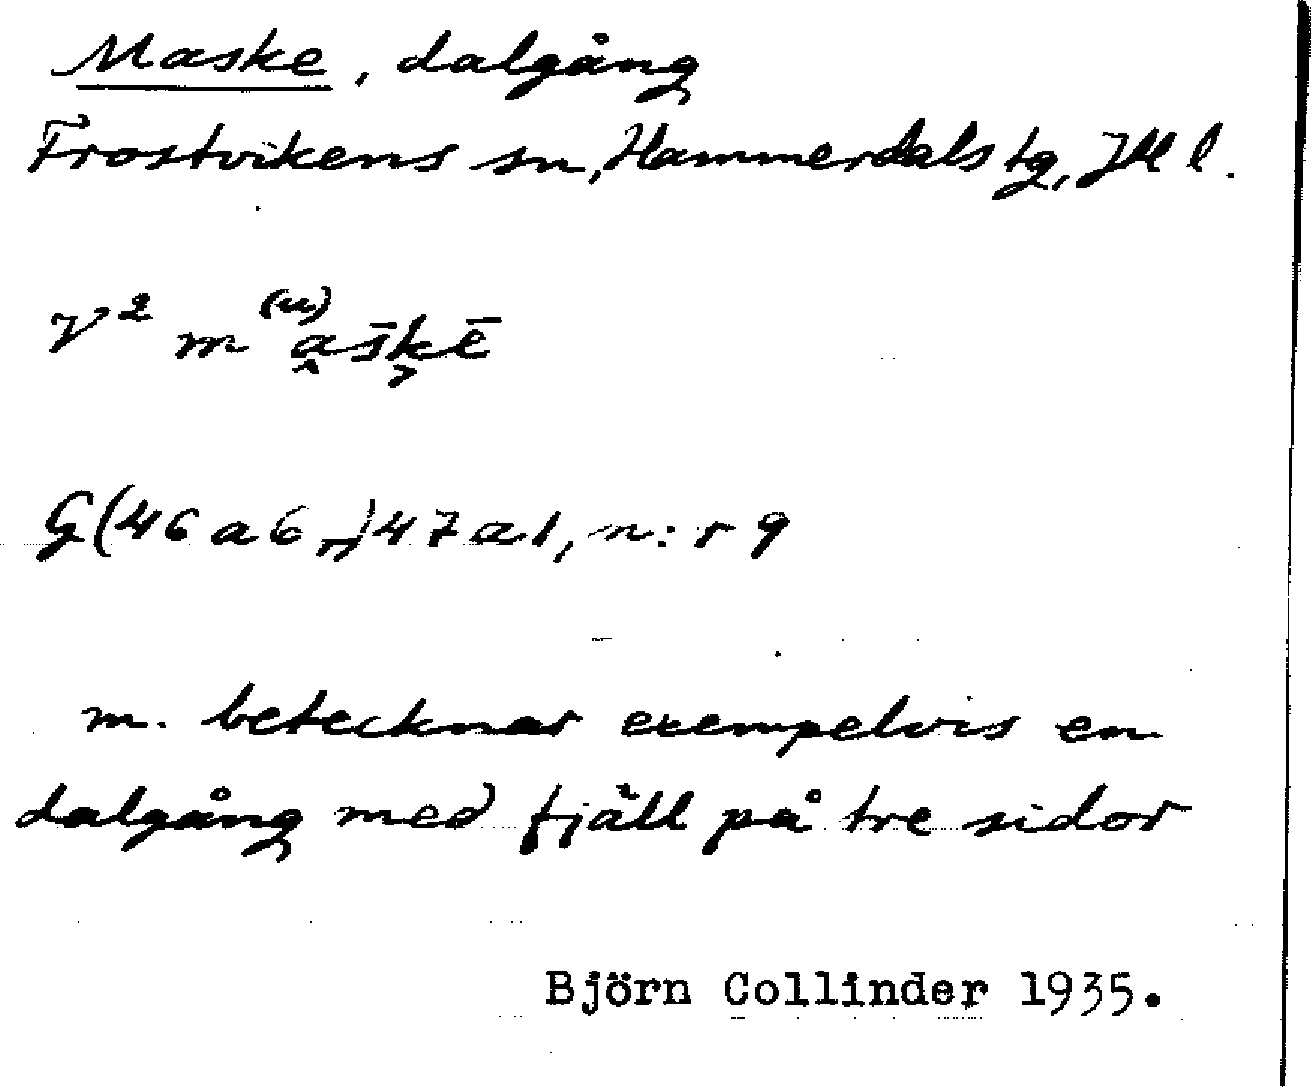 Maske, dalgång
Frostvikens sn, Hammerdals tg, JM l.
V² m⁽ᵘ⁾a̭s̄k̬ē
G(46 a 6,,)47 a 1, n:r 9
m. betecknar exempelvis en
dalgång med fjäll på tre sidor
Björn Collinder 1935.